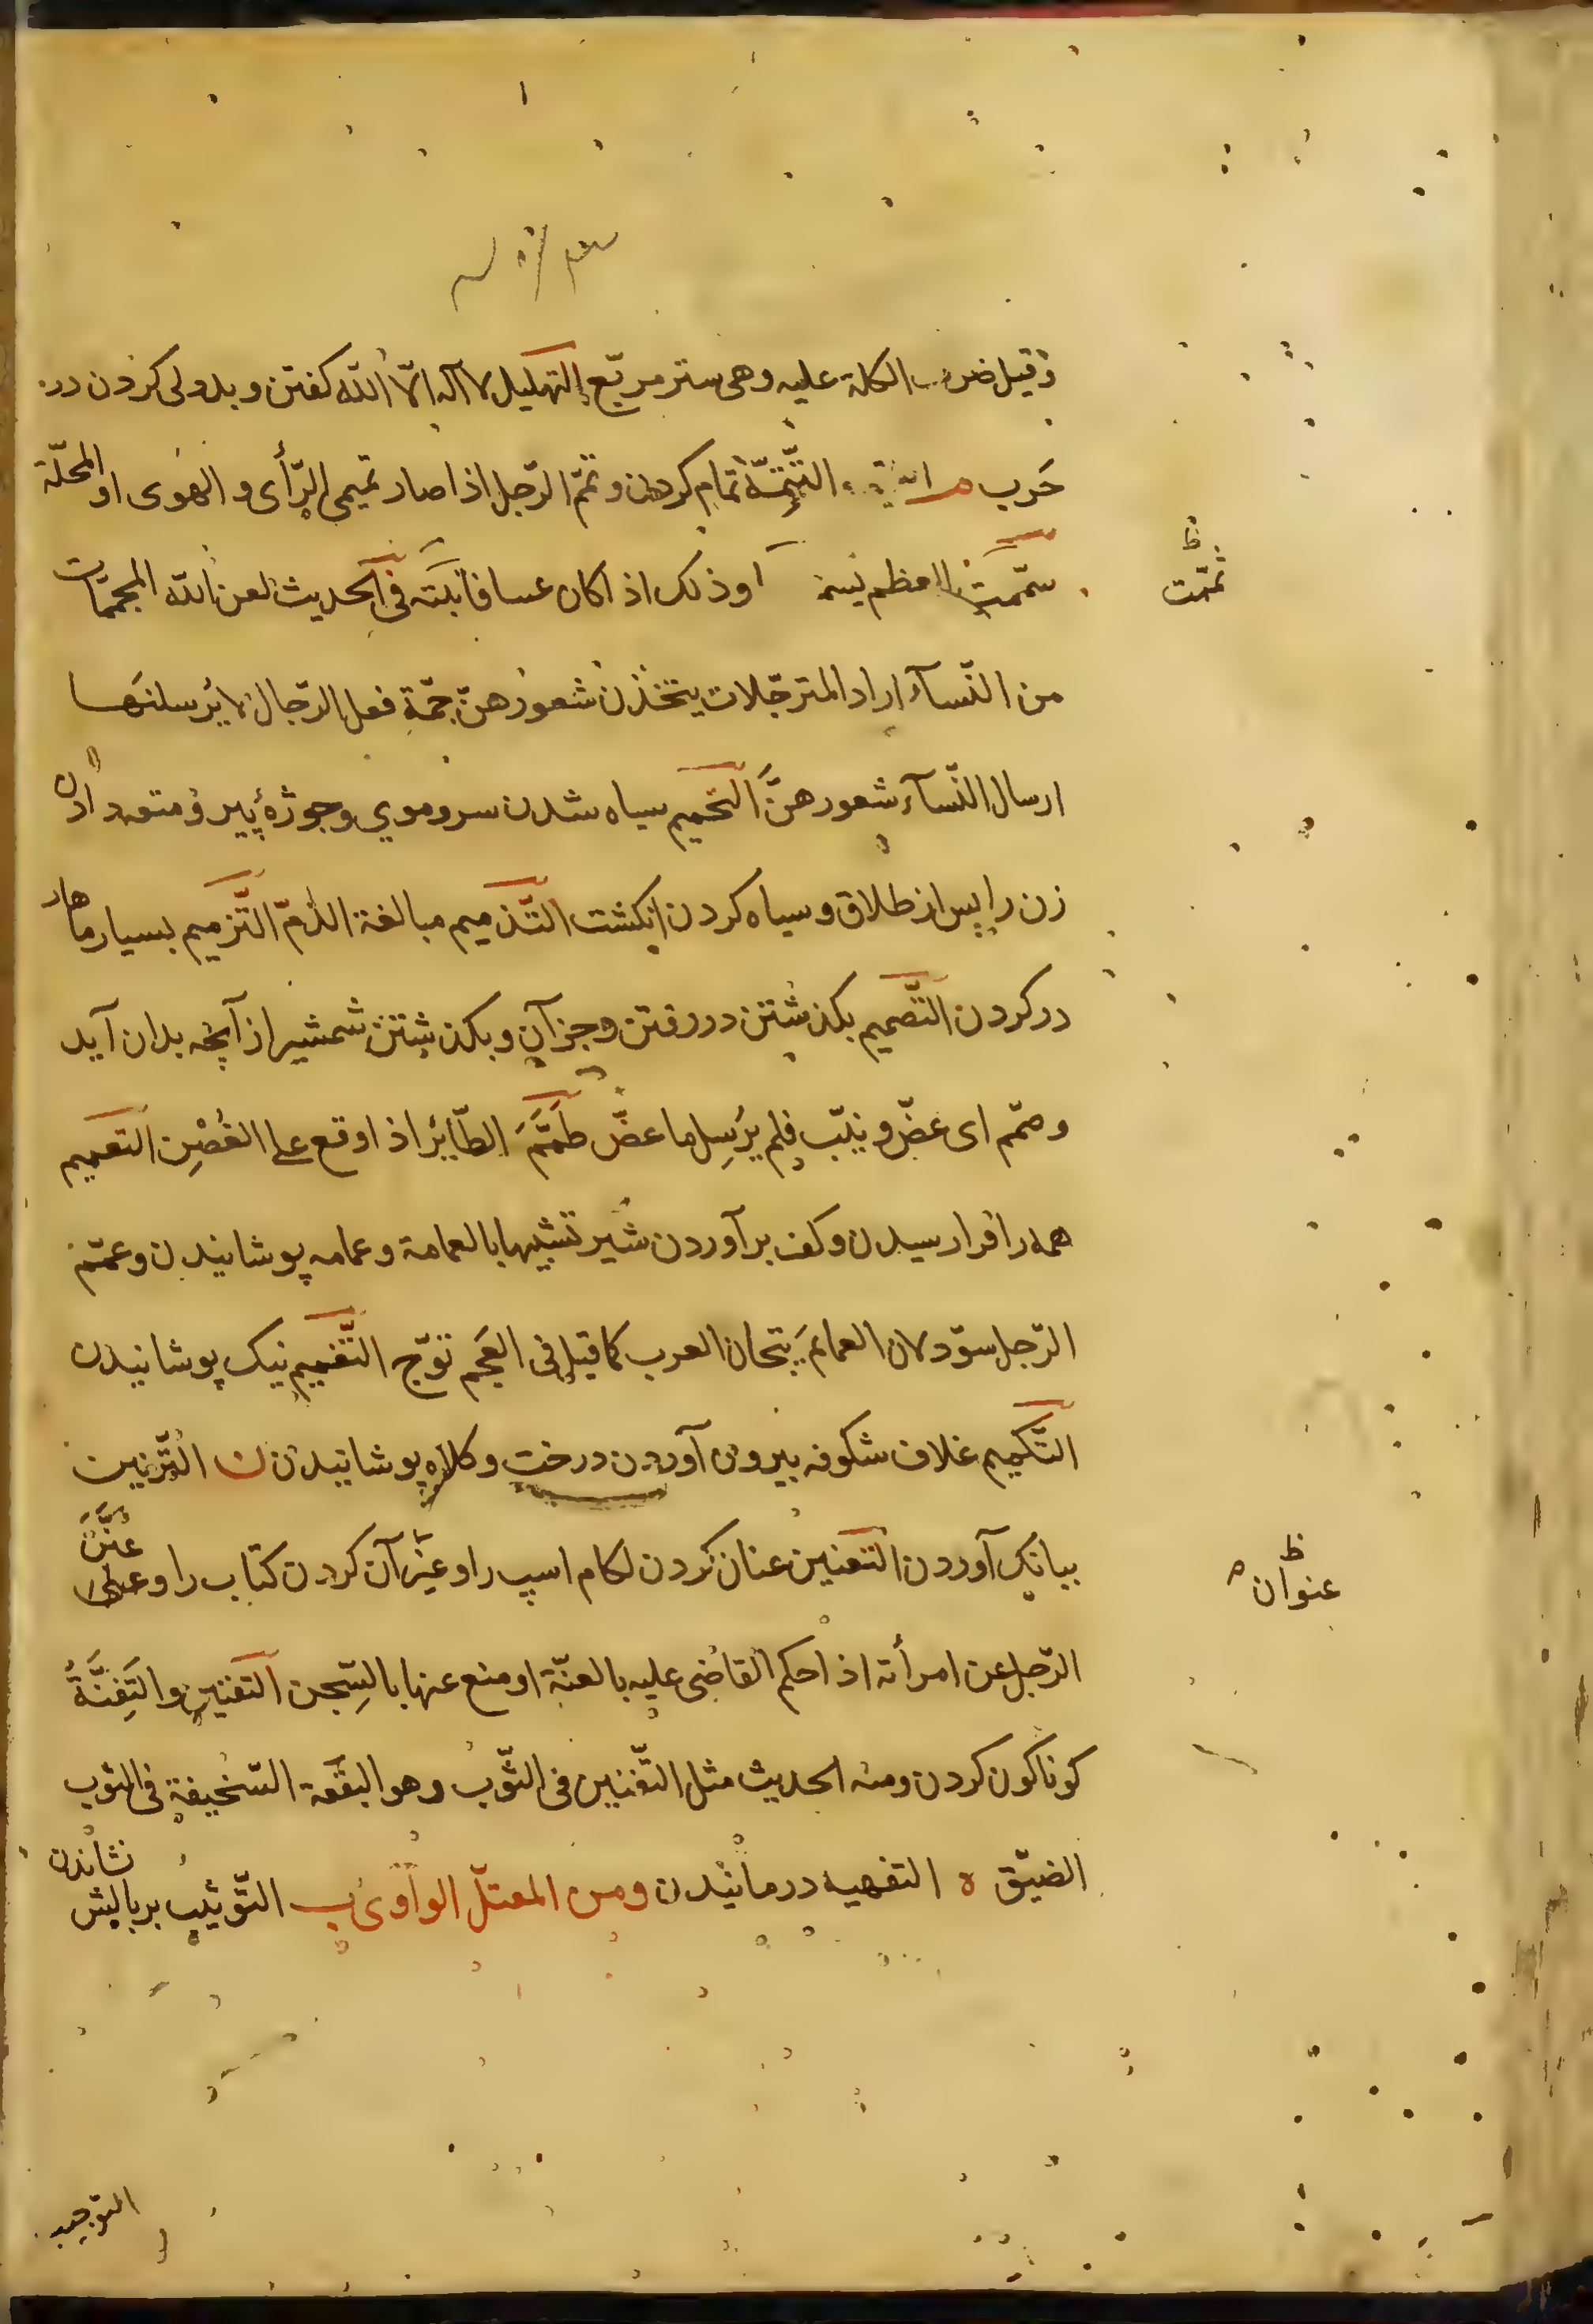 وقیل ضرب الكلة علیه وهی ستر مربّع التهلیل لا اله الّا اللّه كفتن و بددلی كردن در
حَرب م التّتِمّة تمام كردن و تمّم الرّجل اذا صار تمیمی الرّأی و الهوی او المحلّة
تمّمت العظم اذا كان فی الحدیث لعن اللّه المجمّمات
ظ
تمّمت
من النّسآء اراد المترجّلات یتخذن شعورهنّ جمّة فعل الرّجال لا یرسلنها
ارسال النّسآء شعورهنَّ التحمیم سیاه شدن سر و موی و جوژهٔ پیر و متعه دادن
زن را پس از طلاق و سیاه كردن انكشت التّذمیم مبالغة الذمّ التّزمیم بسیار مهار
در كردن التّصمیم بكذشتن در رفتن و جز آن و بكذشتن شمشیر از آنچه بدان آید
و صمّم ای عضّ و نیّب فلم یُرسِل ما عضّ طَمَّمَ الطّایر اذا وقع علی الغُصْنِ التعمیم
همه را فرا رسیدن و كف برآوردن شیر تشبیها بالعمامة و عمامه پوشانیدن و عمّم
الرّجل سوّد لان العمائم تیجان العرب كما قیل فی العَجم توّج التّغمیم نیک پوشانیدن
التّكمیم غلاف شكوفه بیرون آوردن درخت و كلاه پوشانیدن ن التّرنین
ببانک آوردن التعنین عنان كردن لكام اسپ را و غیر آن كردن كتاب را و عُنِّنَ
ظ
عنوان
الرّجل عن امرأته اذا حكم القاضی علیه بالعنّة او منع عنها بالسِّحر التفنین و التَفِنَّةُ
كوناكون كردن و منه الحدیث مثل التّفنین فی الثّوب و هو البقعة السّخیفة فی الثوب
الضیّق ه التفهیه درمانیدن و من المعتلّ الواوی ب التّوئیب بر بالش نشاندن
التوجیب